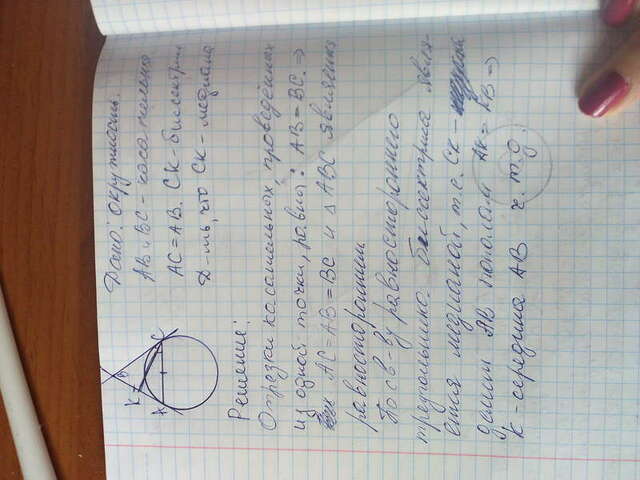 Дано: окружность.
AB и BC - касательные
AC = AB. CK - биссектриса
Д-ть, что CK - медиана
B
K
A
C
Решение:
Отрезки касательных проведённых
из одной точки, равны: AB = BC. ⇒
AC = AB = BC и △ ABC является
равносторонним.
По св-ву равностороннего
треугольника биссектриса явля-
ется медианой, т.е. CK -
делит AB пополам AK = KB ⇒
K - середина AB ч.т.д.